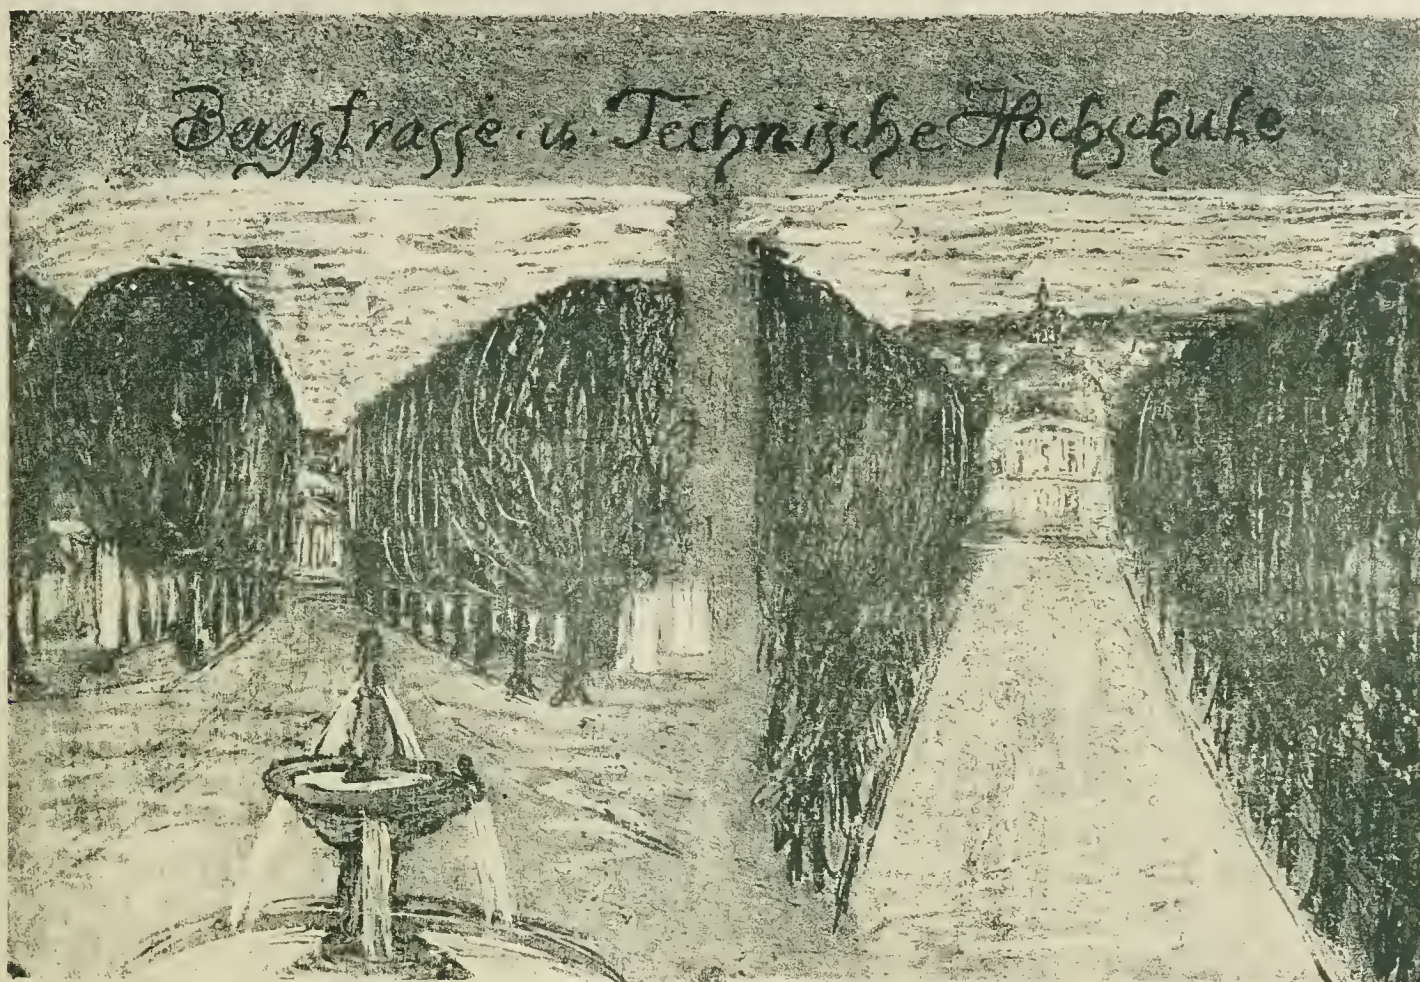 Bergstrasse · u · Technische Hochschule